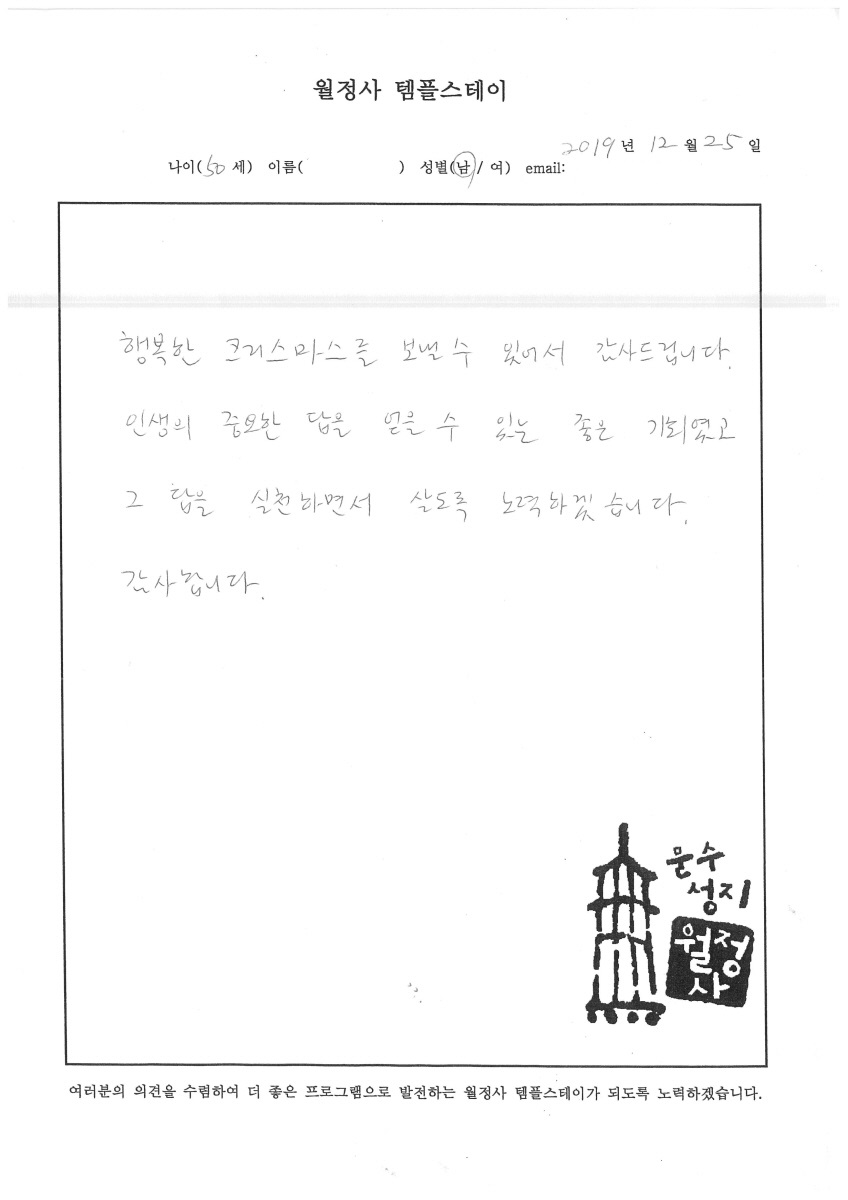 월정사 템플스테이
2019년 12월 25일
나이(50세) 이름( ) 성별(남/ 여) email:
행복한 크리스마스를 보낼 수 있어서 감사드립니다.
인생의 중요한 답을 얻을 수 있는 좋은 기회였고
그 답을 실천하면서 살도록 노력하겠습니다.
감사합니다.
문수
성지
월정
사
여러분의 의견을 수렴하여 더 좋은 프로그램으로 발전하는 월정사 템플스테이가 되도록 노력하겠습니다.